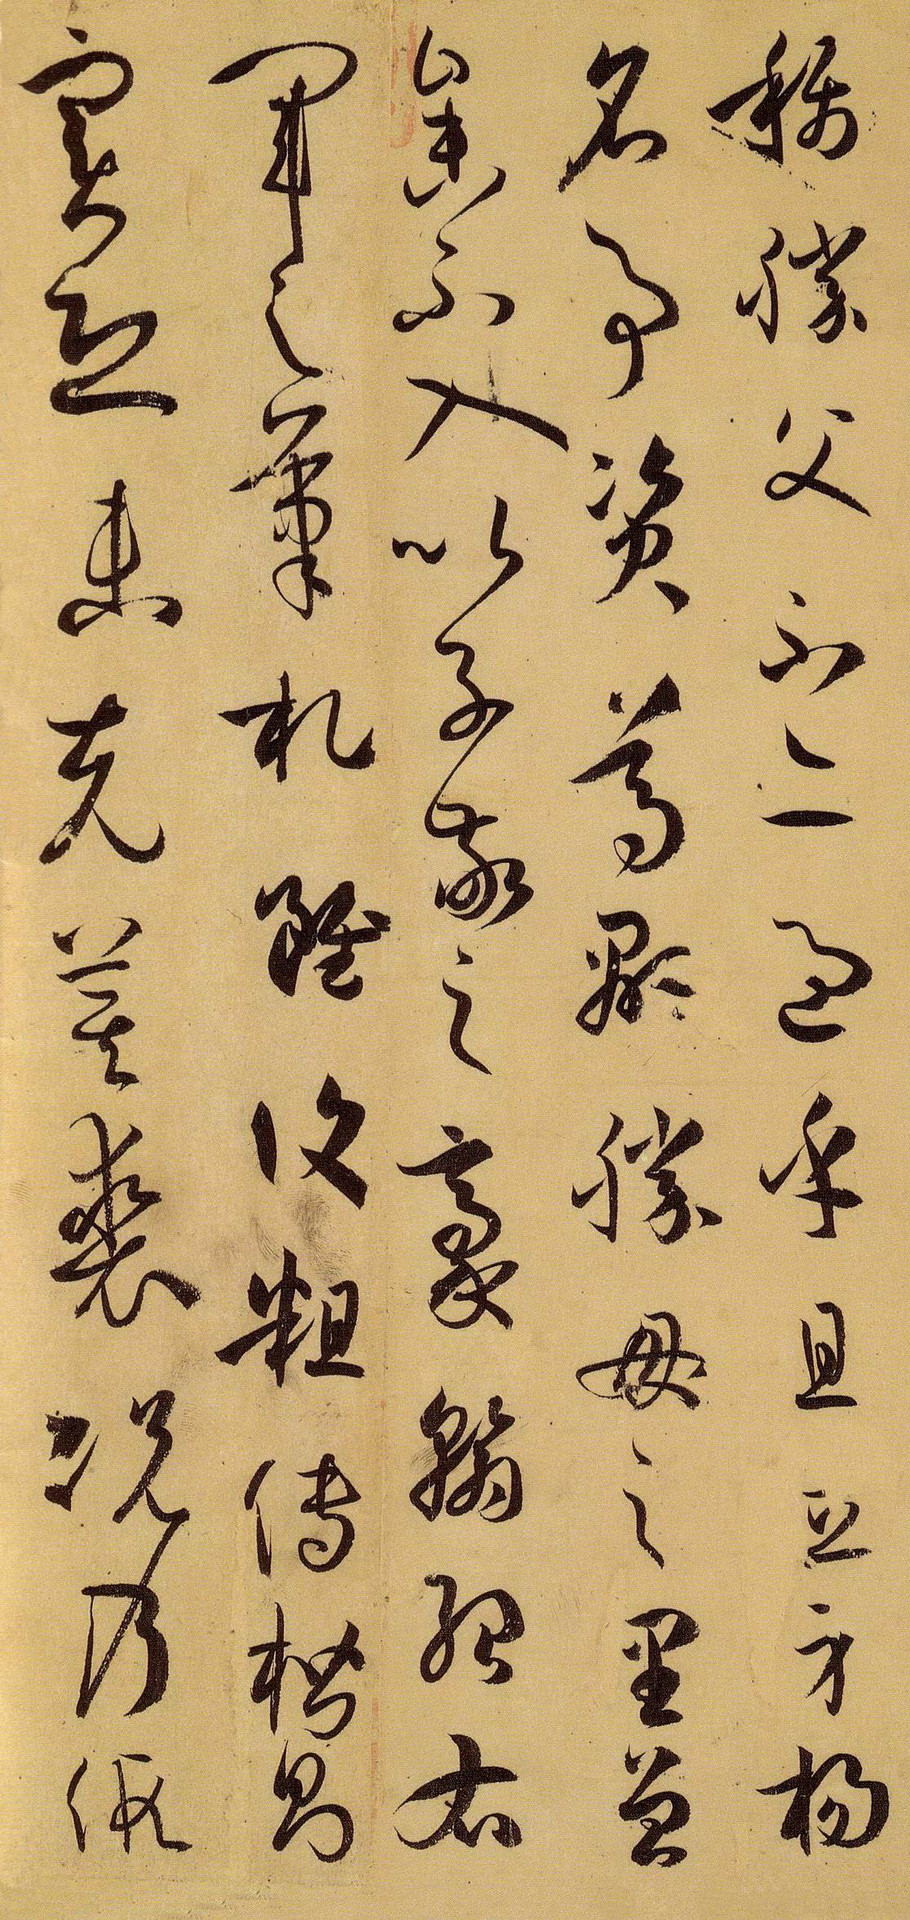 称勝父不亦過乎且立身揚
名事資尊顯勝母之里曾
參不入以子敬之豪翰紹右
軍之筆札雖復粗傳楷則
實恐未克箕裘況乃假